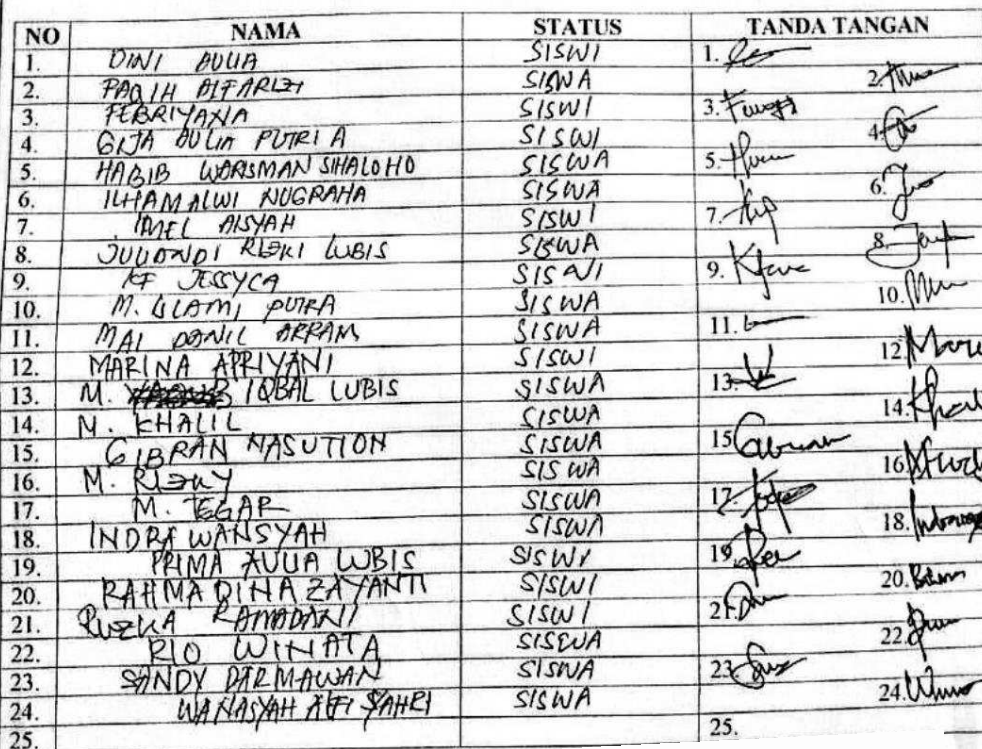 NO NAMA STATUS TANDA TANGAN
1. DINI AULIA SISWI 1.
2. FAQIH ALFARIZI SISWA 2.
3. FEBRIYANA SISWI 3.
4. GITA AULIA PUTRI A SISWI 4.
5. HABIB WORISMAN SIHALOHO SISWA 5.
6. ILHAM ALWI NUGRAHA SISWA 6.
7. IMEL AISYAH SISWI 7.
8. JULIANDI RIZKI LUBIS SISWA 8.
9. KF JESSYCA SISWI 9.
10. M. PUTRA SISWA 10.
11. MAI DANIL ARRAM SISWA 11.
12. MARINA APRIYANI SISWI 12.
13. M. IQBAL LUBIS SISWA 13.
14. M. KHALIL SISWA 14.
15. GIBRAN NASUTION SISWA 15.
16. M. RIZKY SISWA 16.
17. M. TEGAR SISWA 17.
18. INDRA WANSYAH SISWA 18.
19. PRIMA AULIA LUBIS SISWI 19.
20. RAHMA DINA ZAYANTI SISWI 20.
21. RAMADANI SISWI 21.
22. RIO WINATA SISWA 22.
23. SANDY DARMAWAN SISWA 23.
24. WANASYAH SISWA 24.
25. 25.